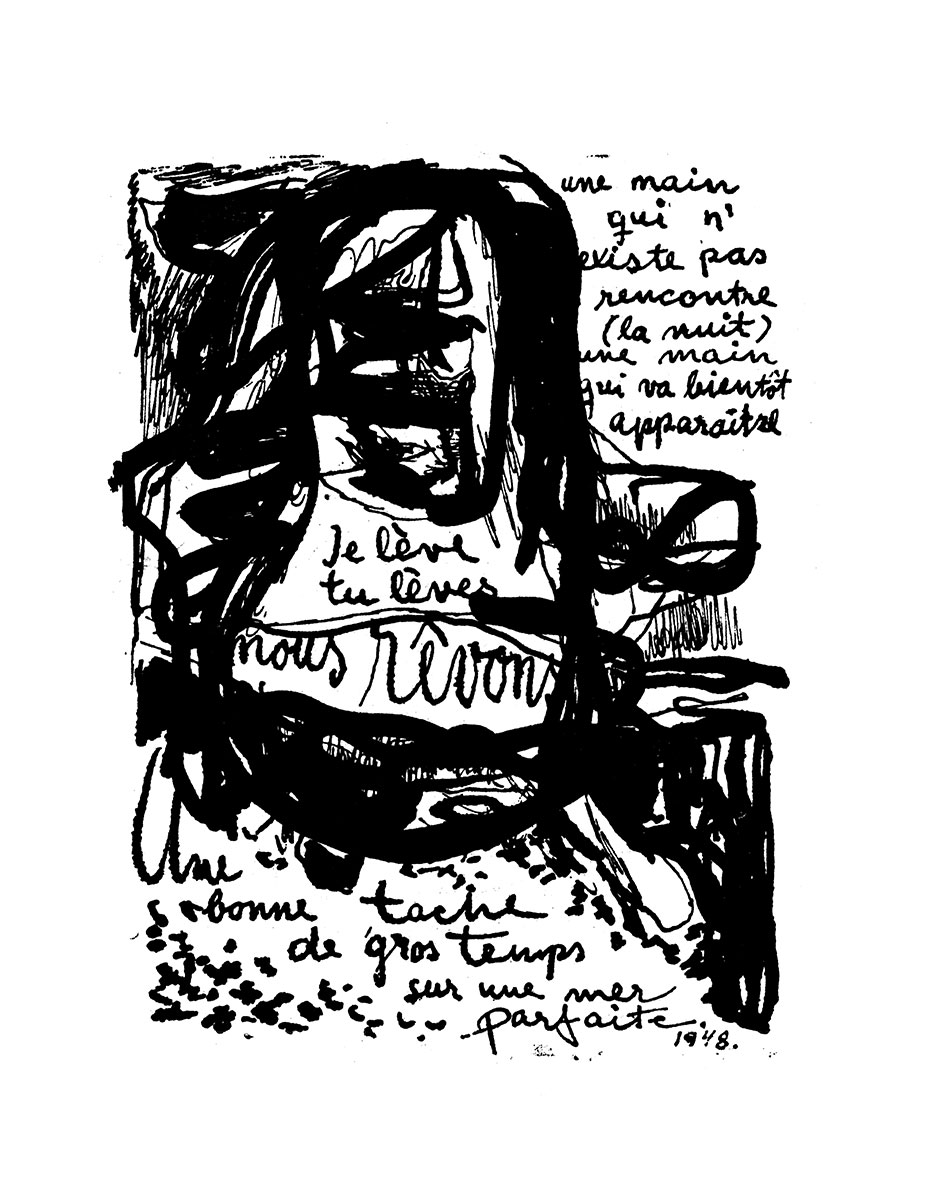 une main
qui n'
existe pas
rencontre
(la nuit)
une main
qui va bientôt
apparaître
Je lève
tu lèves
nous rêvons
Une
bonne tache
de gros temps
sur une mer
parfaite.
1948.